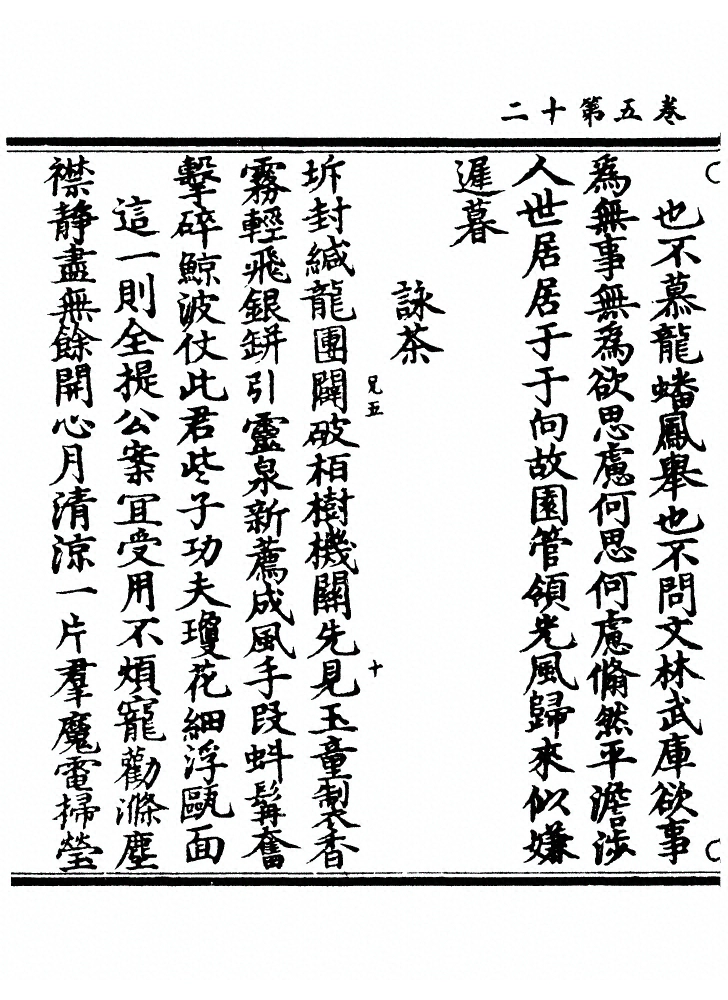 卷五第十二
也不慕龍蟠鳳舉也不問文林武庫欲事
為無事無為欲思慮何思何慮翛然平澹涉
人世居居于于向故園管領光風歸來似嫌
遲暮
詠茶
兄五
十
坼封緘龍團闢破栢樹機關先見玉童製香
霧輕飛銀缾引靈泉新薦成風手段蚪髯奮
擊碎鯨波仗此君些子功夫瓊花細浮甌面
這一則全提公案宜受用不煩寵勸滌塵
襟靜盡無餘開心月清涼一片羣魔電掃瑩